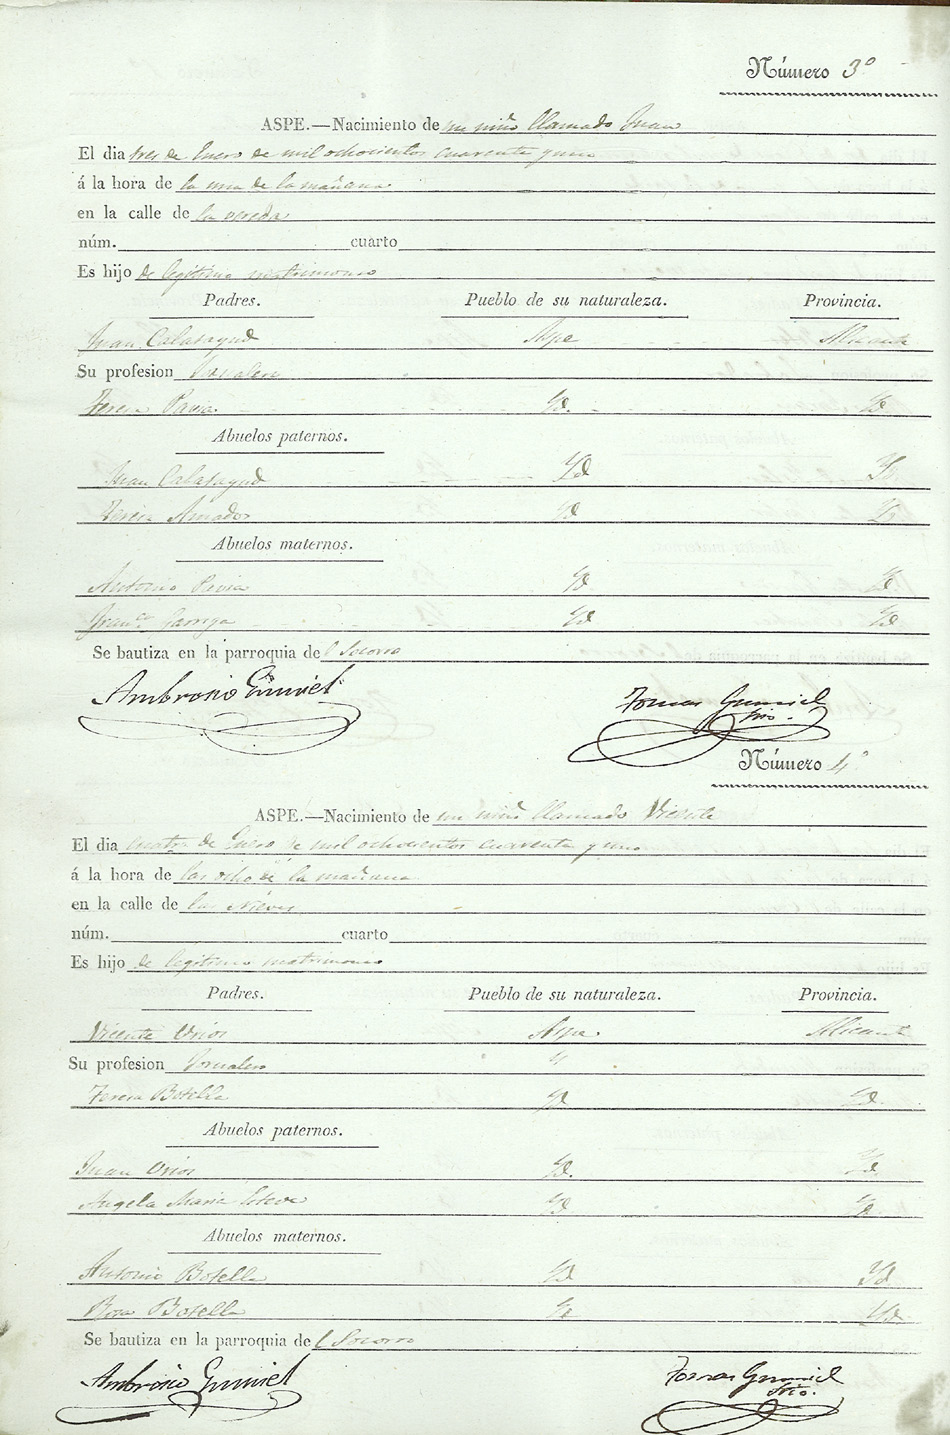 Número 3º
ASPE.—Nacimiento de un niño llamado Juan
El dia tres de Enero de mil ochocientos cuarenta y uno
á la hora de la una de la mañana
en la calle de la
núm. cuarto
Es hijo de legitimo matrimonio
Padres. Pueblo de su naturaleza. Provincia.
Juan Calatayud Aspe Alicante
Su profesion Jornalero
Teresa Pavia Yd. Yd
Abuelos paternos.
Juan Calatayud Yd Yd
Teresa Amador Yd Yd
Abuelos maternos.
Antonio Pavia Yd Yd
Franca. Garriga Yd Yd
Se bautiza en la parroquia del Socorro
Ambrosio Gumiel
Tomas Gumiel
Srio.
Número 4º
ASPE.—Nacimiento de un niño llamado Vicente
El dia cuatro de Enero de mil ochocientos cuarenta y uno
á la hora de las ocho de la mañana
en la calle de las Nieves
núm. cuarto
Es hijo de legitimo matrimonio
Padres. Pueblo de su naturaleza. Provincia.
Vicente Urios Aspe Alicante
Su profesion Jornalero
Teresa Botella Yd Yd.
Abuelos paternos.
Juan Urios Yd. Yd.
Angela Maria Esteve Yd Yd
Abuelos maternos.
Antonio Botella Yd Yd
Rosa Botella Yd Yd
Se bautiza en la parroquia del Socorro
Ambrosio Gumiel
Tomas Gumiel
Srio.